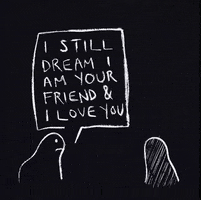 I STILL
DREAM I
AM YOUR
FRIEND &
I LOVE YOU